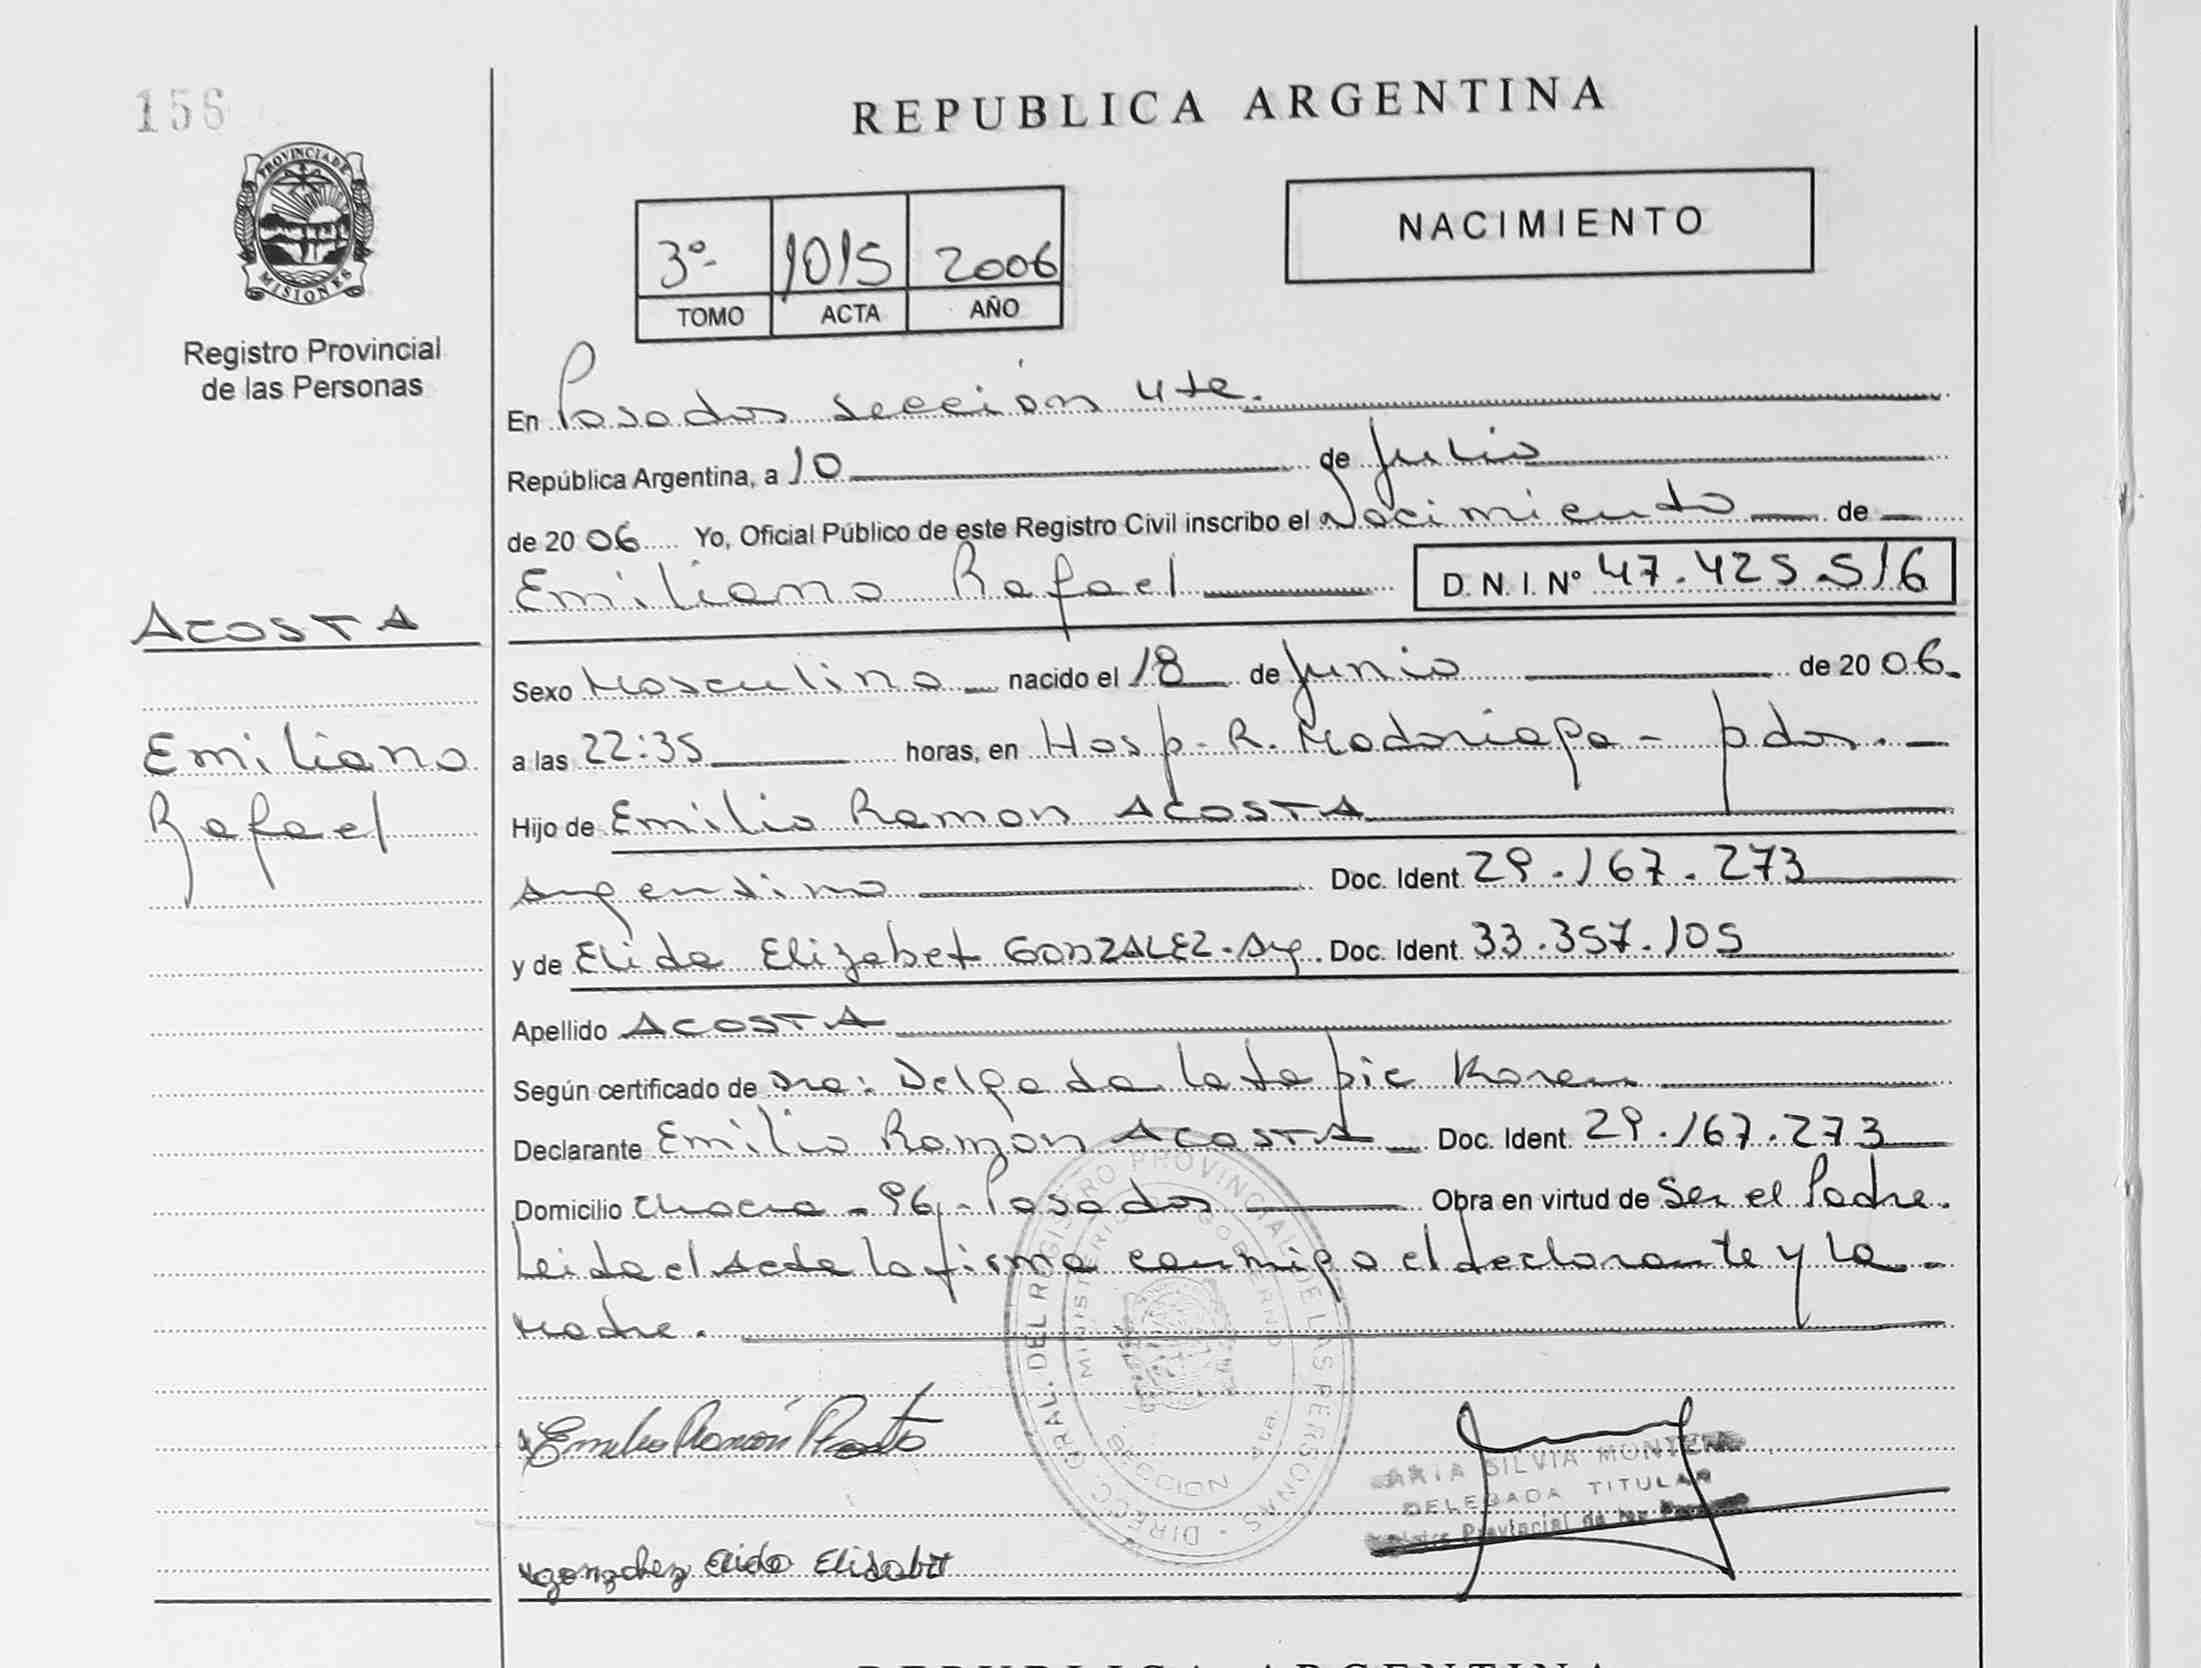 156
REPUBLICA ARGENTINA
PROVINCIA DE
MISIONES
Registro Provincial
de las Personas
3º- 1015 2006
TOMO ACTA AÑO
NACIMIENTO
En Posadas sección 4ta.
República Argentina, a 10 de Julio
de 2006 Yo, Oficial Público de este Registro Civil inscribo el Nacimiento de
Emiliano Rafael D. N. I. Nº 47.425.516
ACOSTA
Sexo Masculino nacido el 18 de Junio de 2006.
Emiliano
a las 22:35 horas, en Hosp. R. Madariaga - pdas.
Rafael
Hijo de Emilio Ramon ACOSTA
Argentino Doc. Ident. 29.167.273
y de Elida Elizabet GONZALEZ - Arg. Doc. Ident. 33.357.105
Apellido ACOSTA
Según certificado de Dra: Delgado Karen
Declarante Emilio Ramón ACOSTA Doc. Ident. 29.167.273
Domicilio chacra - 96 - Posadas Obra en virtud de Ser el Padre.
Leida el Acta la firma conmigo el declarante y la
Madre.
DIRECC. GRAL. DEL REGISTRO PROVINCIAL DE LAS PERSONAS
MINISTERIO GOBIERNO
SECCION 4ta.
Emilio Ramón Acosta
MARIA SILVIA
DELEGADA TITULAR
Registro Provincial de las Personas
gonzalez Elida Elisabet
REPUBLICA ARGENTINA